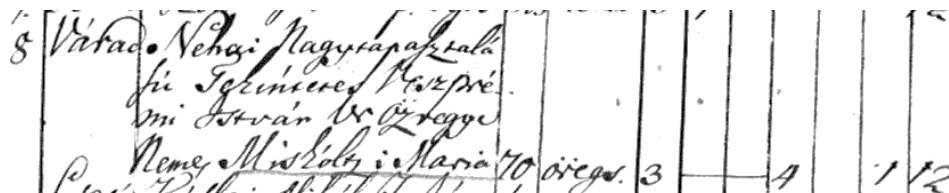 8 Várad. Néhai Nagytapasztalá
sú Tekintetes Veszpré
mi István Úr özvegye
Nemes Miskóltzi Maria 70 öregs. 3 4 1 12